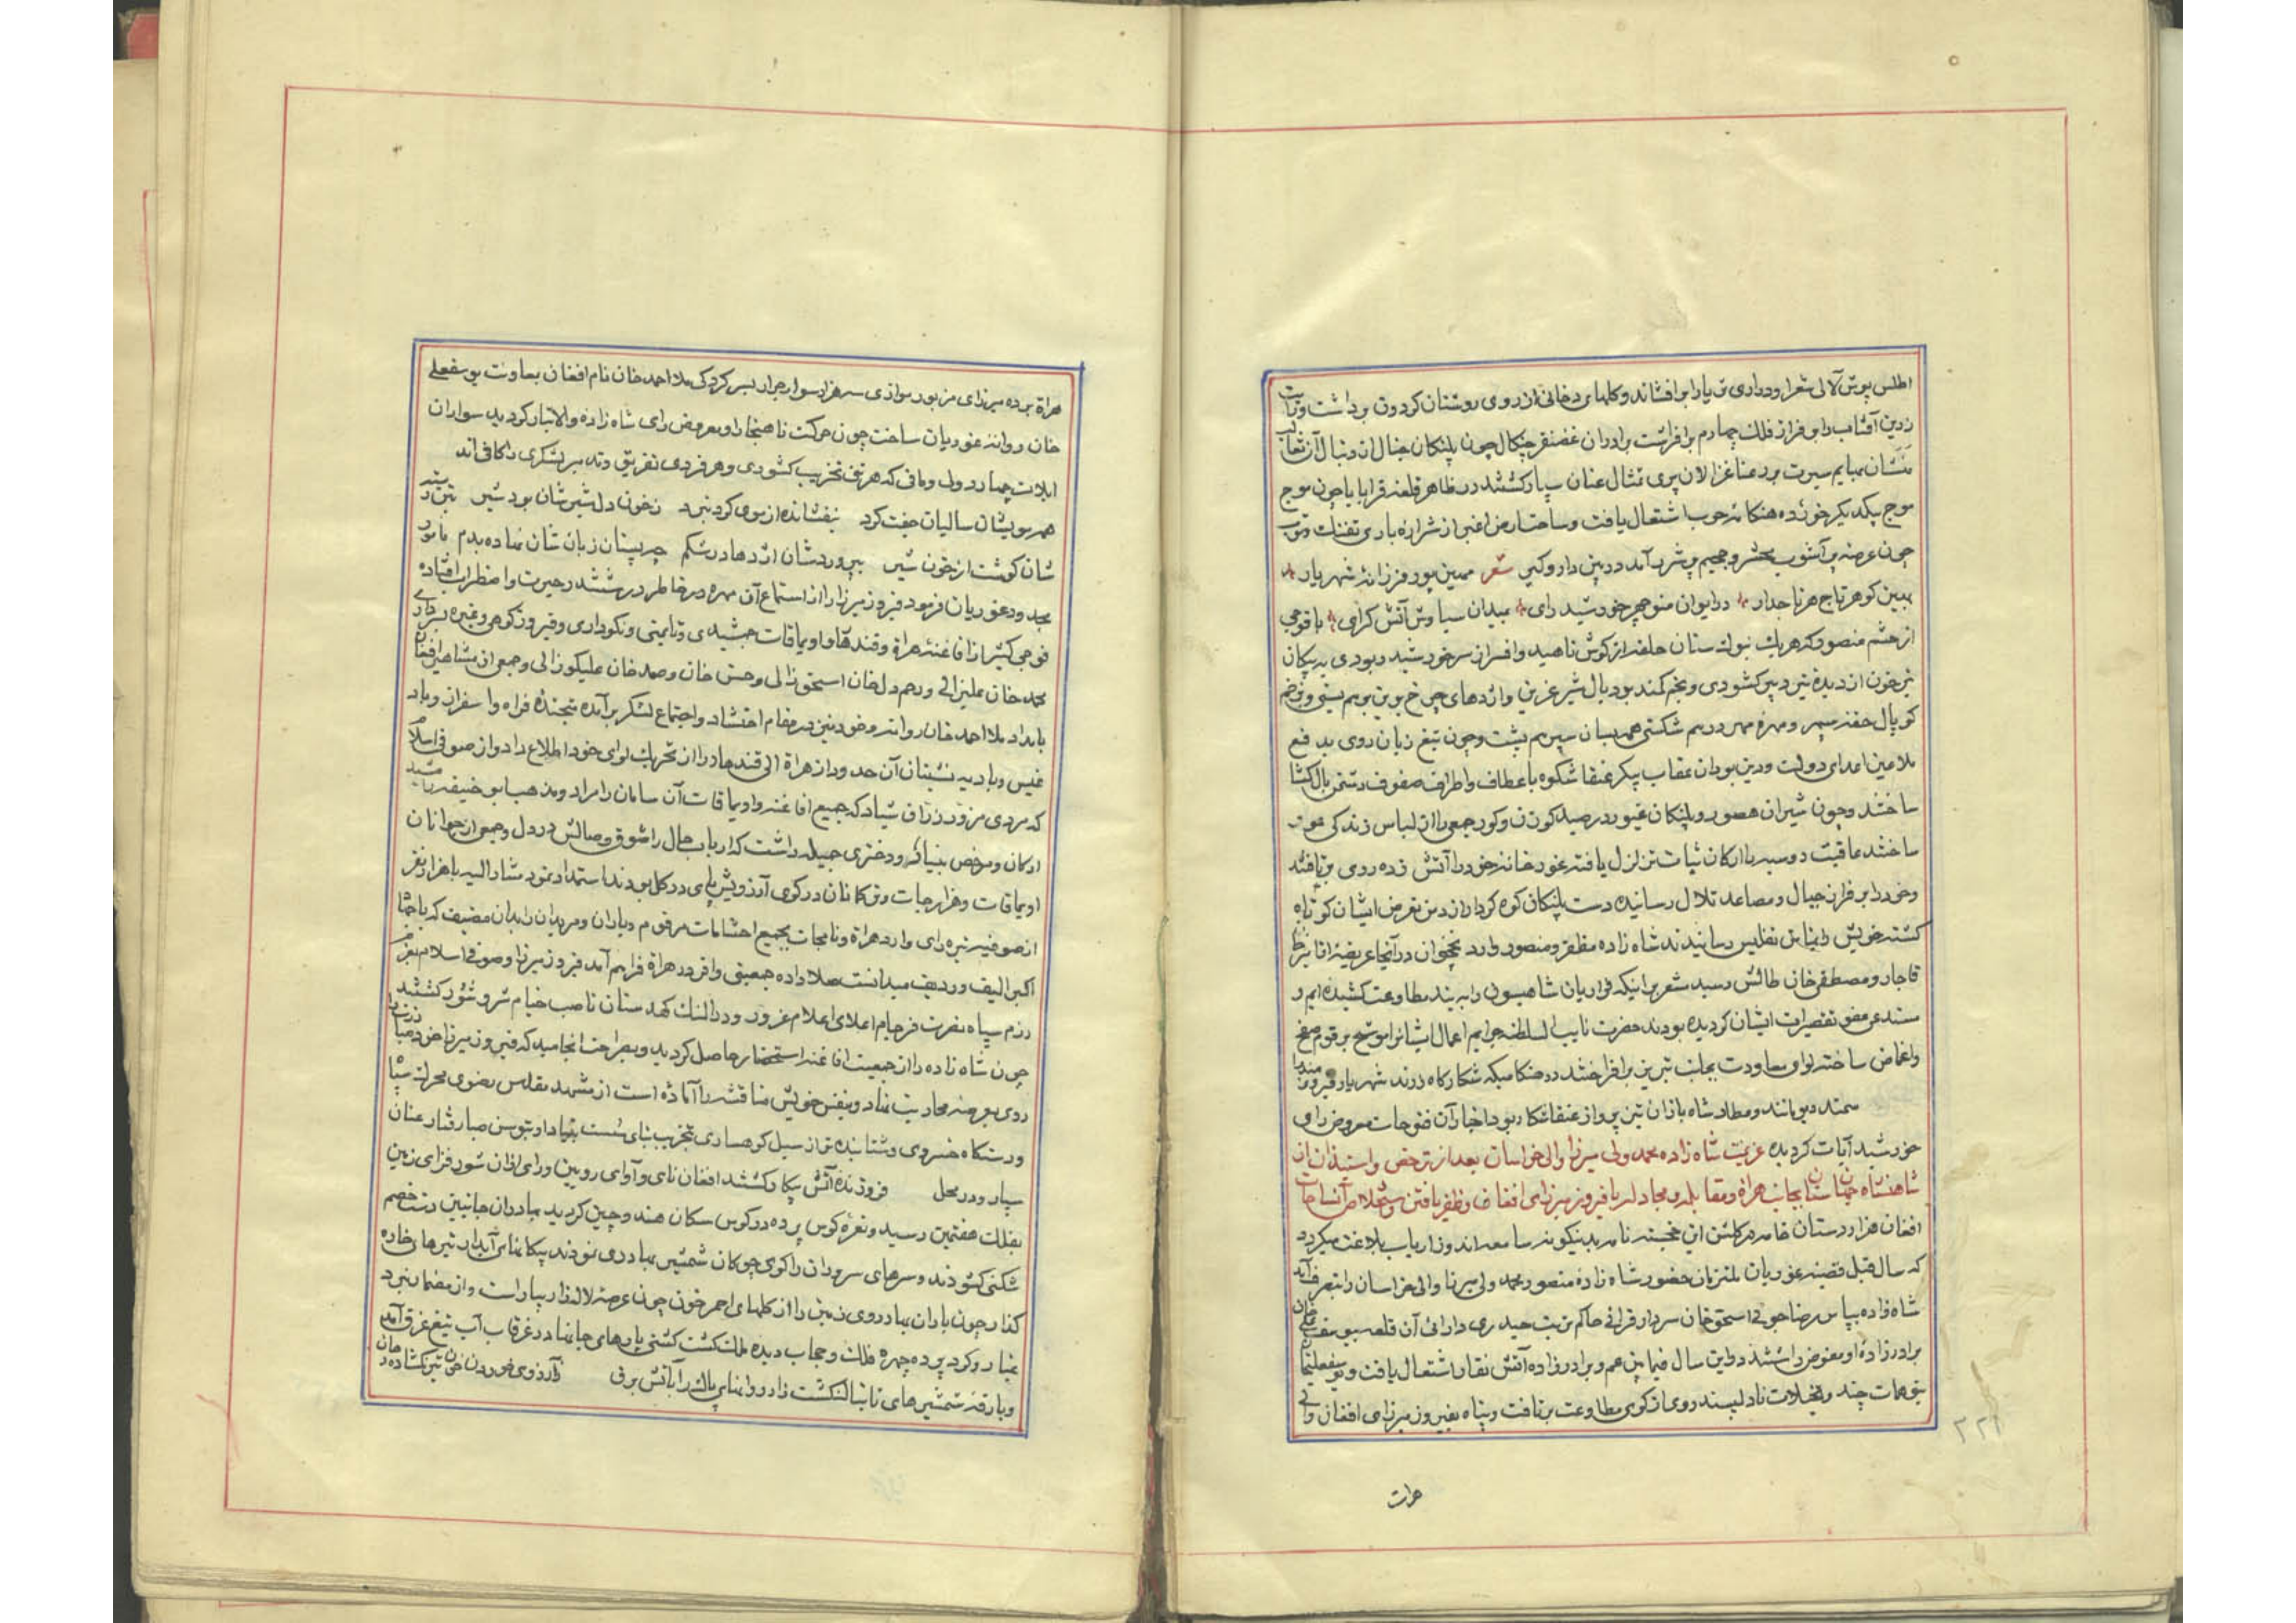 اطلس پوش لآلی شعرا و دراری ثریا را برافشاند و کلهای دخانی از روی روستان کردون برداشت و رایت
زرین آفتاب را بر فراز فلک چهارم برافراشت برادران غضنفر چنکال چون پلنکان جبال از دنبال آن ثعالب
منشان بهایم سیرت بر دعنا غزالان پری تمثال عنان سپار کشتند در ظاهر قلعه قراباباچون موج
موج یکدیکر خورده هنکامه حرب اشتعال یافت و ساحت ارض اغبر از شراره باری تفنک و توپ
چون عرصه پر آشوب محشر و جحیم پر شرر آمد در بن دار و کیر شعر مهین پور فرزانهٔ شهریار
بهین کوهر تاج هر تاجدار در ایوان منوچهر خورشید رای بمیدان سیاوش آتش کرای با فوجی
از حشم منصور که هر یک بنوک سنان حلقه از کوش ناهید و افسر از سر خورشید ربودی به پیکان
تیر خون از دیدهٔ تیر دبیر کشودی و بخم کمند بود یال شیر غرین و اژدهای چرخ برین بر هم بستی و زخم
کوپال حقه سپهر و مهرهٔ مهر در هم شکستی همه بسان سپر هم پشت و چون تیغ زبان روی بدفع
ملاعین اعدای دولت و دین بودان عقاب پیکر عنقا شکوه باعطاف و اطراف صفوف دشمن بال کشا
ساختند و چون شیران هصور و پلنکان غیور در صید کوزن و کور جمعی را از لباس زندکی عور
ساختند عاقبت روسیه را ارکان ثبات تزلزل یافته غور خانه خود را آتش زده روی برتافتند
و خود را بر فراز جبال و مصاعد تلال رسانیده دست پلنکان کوه کردار از دمن تعرض ایشان کوتاه
کشته خویش را بنابن تفلیس رسانیدند شاه زاده مظفر و منصور وارد نخجوان در آنجا عریضهٔ آقا بیرخان
قاجار و مصطفی خان طالش رسید مشعر براینکه فراریان شاهیسون را به بند مطاوعت کشیده ایم و
مستدعی عفو تقصیرات ایشان کردیده بودند حضرت نایب السلطنه جرایم اعمال ایشانرا موشح برقوم صفح
و اغماض ساخته لوای معاودت بجانب تبریز برافراختند در هنکامیکه شکارکاه زرند شهریار فیروزمند را
سمند دیو مانند و مطار شاه بازان تیز پرواز عنقا شکار بود اخبار آن فتوحات معروض رای
خورشید آیات کردید عزیمت شاه زاده محمد ولی میرزا والی خراسان بعد از ترخص و استیذان از
شاهنشاه جهان ستان بجانب هراة و مقابله و مجادله با فیروز میرزای افغان و ظفر یافتن و استخلاص آن ساحات
افغان هزار دستان خامه در کلشن این خجسته نامه بدینکونه سامعه اندوز ارباب بلاغت میکردد
که سال قبل قضیه غوریان بلتزبان حضور شاه زاده منصور محمد ولی میرزا والی خراسان را بتصرف آمد
شاه زاده بپاس رضا جوئی اسحق خان سردار قرائی حاکم تربت حیدری دارائی آن قلعه بیوسفعلی خان
برادر زادهٔ او مفوض داشتند در این سال فیما بین عم و برادر زاده آتش نقار اشتعال یافت و یوسفعلیخان
بتوهمات چند و تخیلات نادلپسند روی از کوی مطاوعت برتافت و پناه بفیروز میرزای افغان والی
هرات
۲۲۱
هراة برده میرزای مزبور موازی سه هزار سوار جرار بسر کردکی ملا احمد خان نام افغان بمعاونت یوسفعلی
خان روانه غوریان ساخت چون حرکت ناهنجار او معروض رای شاه زادهٔ والاتبار کردید سواران
ایلات چهار دولی و مافی که هر نفری تخریب کشوری و هر فردی تفریق و تدمیر لشکری را کافی اند
همه مویشان سالیان جفت کرد بیفشانده از موی کرد نبرد ز خون دل شیرشان بود شیر تن و
شان کوشت از خون شیر بپروردشان اژدها در شکم چو پستان زبان شان نهاده بدم مامور
بحدود غوریان فرمود فیروز میرزا را از استماع آن مهره در خاطر در ششدر حیرت و اضطراب افتاده
فوجی کثیر از افاغنهٔ هراة و قندهار و اویماقات جمشیدی و تایمنی و نکوداری و فیروزکوهی و غیره بسرداری
محمد خان علیزائی و رحم دل خان اسحق زائی و حسن خان و صمد خان علیکوزائی و جمعی از مشاهیر افغان
بامداد ملا احمد خان روانه و خود نیز در مقام احتشاد و اجتماع لشکر برآمده متجندهٔ فراه و اسفزار و باد
غیس و بادیه نشینان آن حدود از هراة الی قندهار را از تحریک لوای خود اطلاع داد و از صوفی اسلام
که مردی مزور زراق شیاد که جمیع افاغنه و اویماقات آن سامان را مراد و مذهب ابو حنیفه را مشید
ارکان و مرصص بنیان و دختری جمیله داشت که ارباب حال را شوق وصالش در دل و جمعی از جوانان
اویماقات و هزارجات و ترکمانان در کوی آرزویش پای در کل بودند استمداد نمود مشار الیه با هزار نفر
از صوفیه تیره رای وارد هراة و نامجات بجمیع احتشامات مرقوم و یاران و مریدان را بدان مضیف که با جهاد
اکبر الیف و ردیف میدانست صلا داده جمعیتی وافر در هراة فراهم آمد فیروز میرزا و صوفی اسلام بعزم
رزم سپاه نصرت فرجام اعلای اعلام غرور و در النک کهدستان ناصب خیام شر و شور کشتند
چون شاه زاده را از جمعیت افاغنه استحضار حاصل کردید و بصراحت انجامید که فیروز میرزا خود مبارزت را
روی بعرصه محاربت نهاد و بنفس خویش مناقشه را آماده است از مشهد مقدس رضوی محرک سپاه
و دستکاه خسروی و شتابنده تر از سیل کوهساری تخریب بنای سست بنیاد او بتوسن صبا رفتار عنان
سپار و در محل فروزنده آتش پیکار کشتند افغان نای و آوای رویین ورای اذان شور فزای زمین
بفلک هفتمین رسید و نعرهٔ کوس پرده در کوس سکان هند و چین کردید بهادران جانبین دست خصم
شکنی کشودند و سرهای سروران را کوی چوکان شمشیر بهادری نمودند پیکانهای آبدار تیرهای خاره
کذار چون باران بهار روی زمین را از کلهای احمر خون چون عرصهٔ لاله زار بیاراست و از مضمار نبرد
غبار و کرد پرده چهره فلک و حجاب دیده ملک کشت کشتی یلرهای جانها در غرقاب آب تیغ غرق آمد
و بارقه شمشیرهای تابناک شت زار روانهای پاک را آتش برق زآرزوی خوردن خون تیر بکشاده دهان